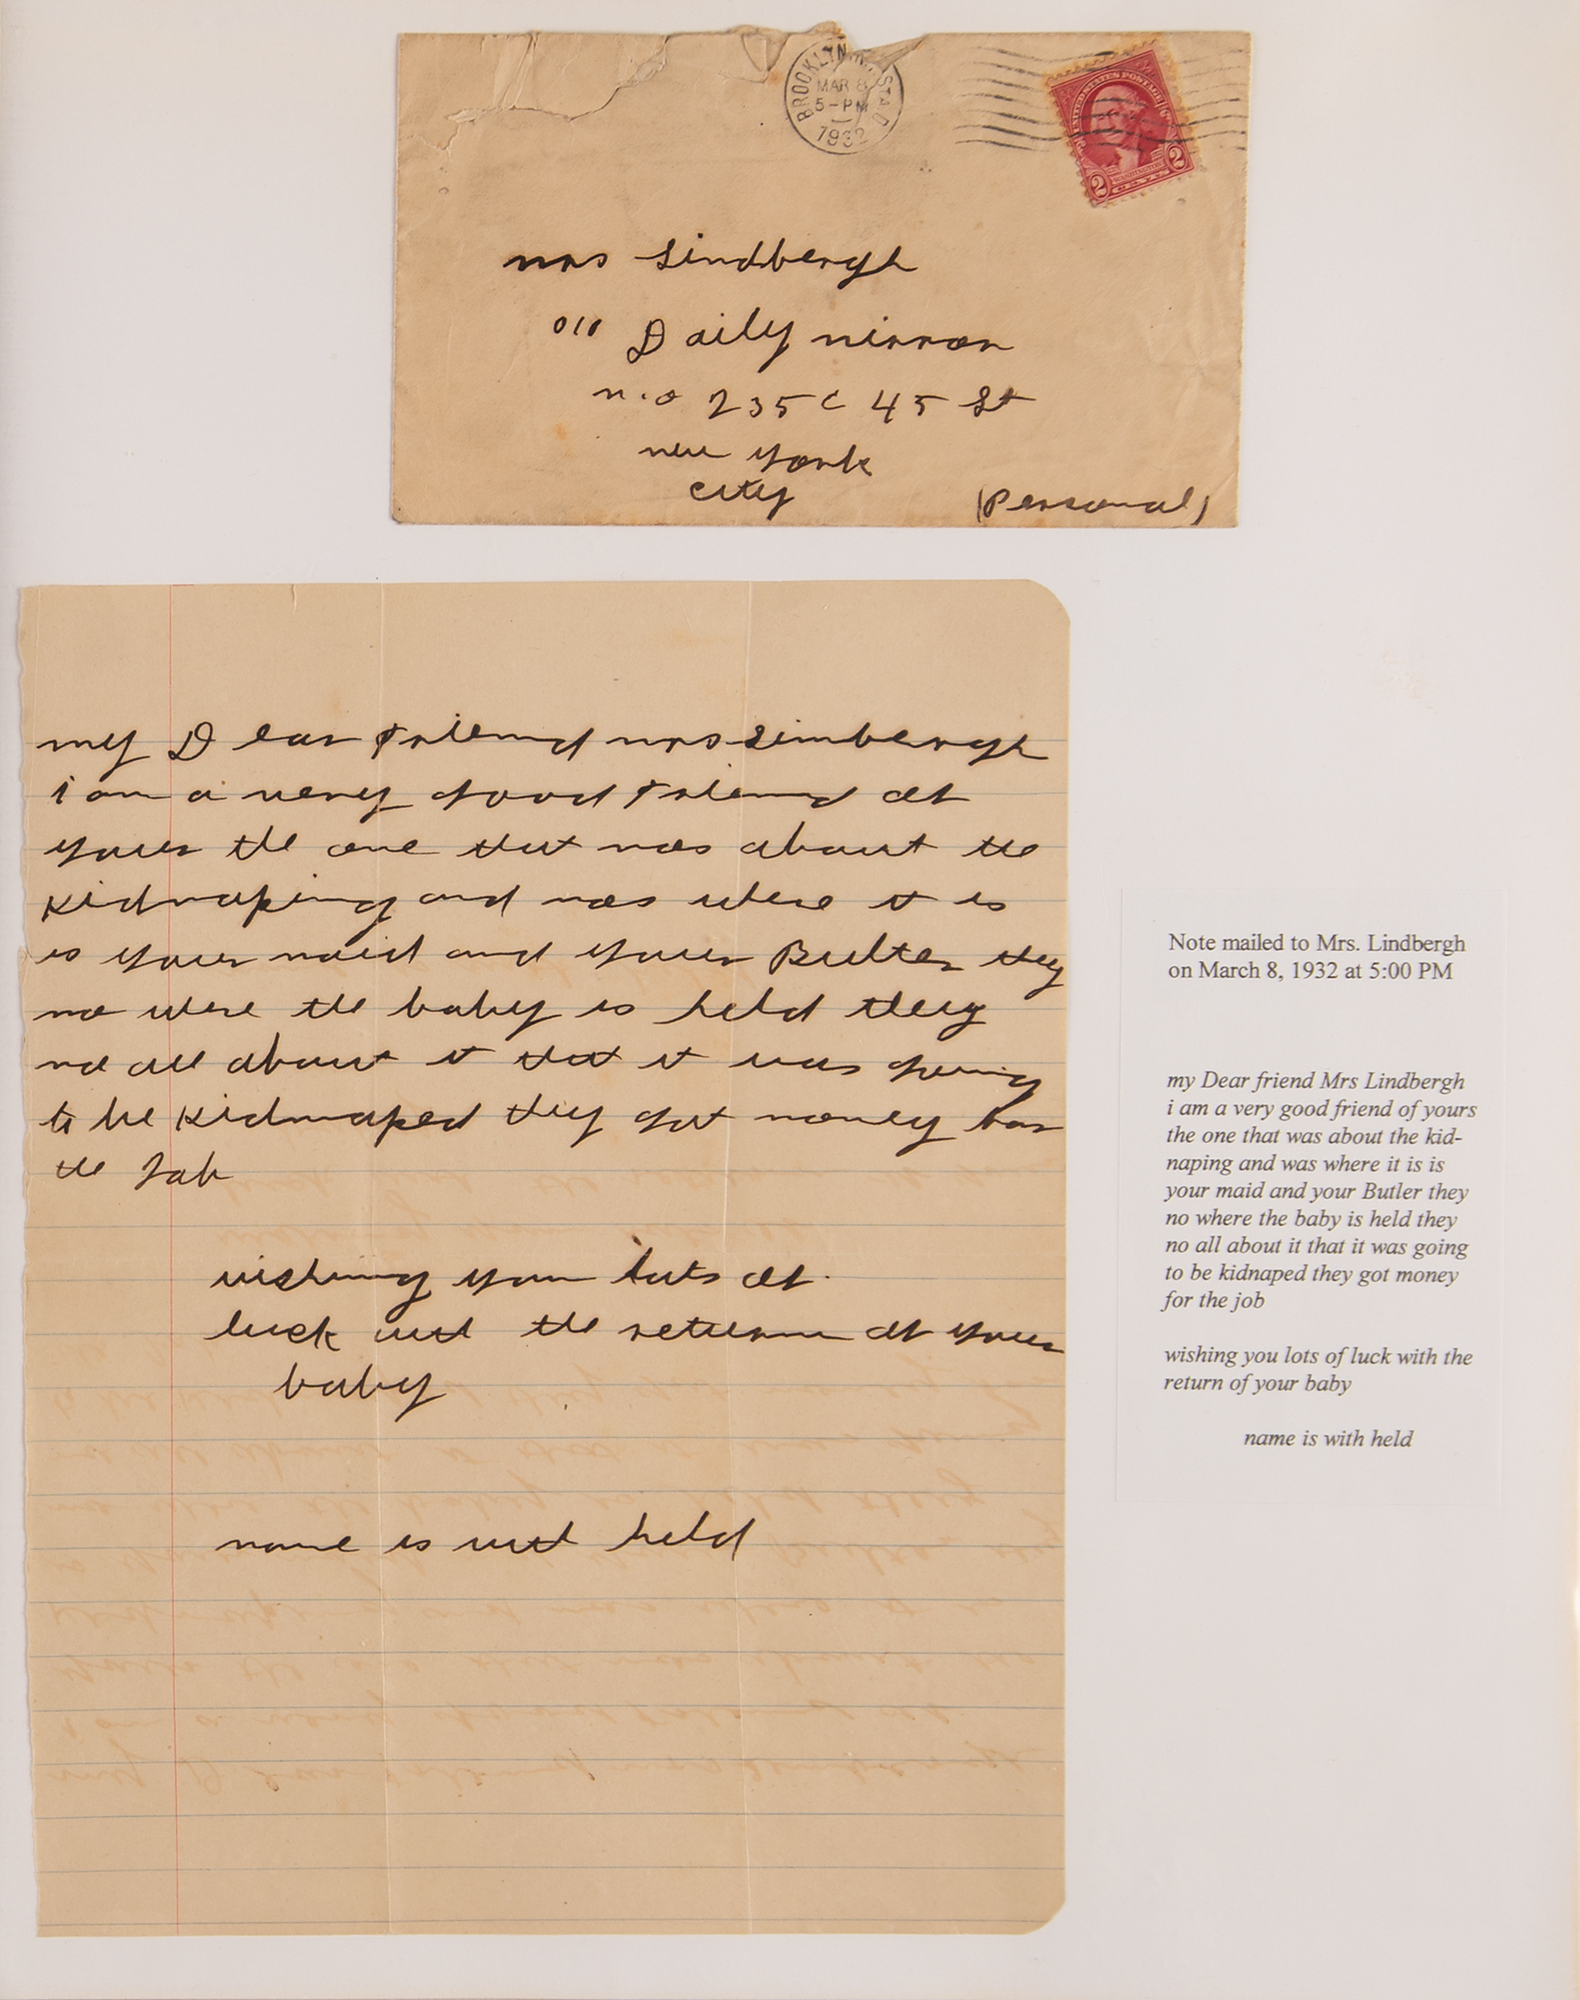 BROOKLYN, N.Y. STA.
MAR 8
5-PM
1932
UNITED STATES POSTAGE
2 2
WASHINGTON
CENTS
mrs Lindbergh
Daily mirror
n.o 235 E 45 St
new york
city
(Personal)
my Dear friend mrs Limbergh
i am a very good friend of
yours the one that was about the
kidnaping and was where it is
is your maid and your Butler they
no where the baby is held they
no all about it that it was going
to be kidnaped they got money for
the Job
wishing you luts of
luck with the return of your
baby
name is with held
Note mailed to Mrs. Lindbergh
on March 8, 1932 at 5:00 PM
my Dear friend Mrs Lindbergh
i am a very good friend of yours
the one that was about the kid-
naping and was where it is is
your maid and your Butler they
no where the baby is held they
no all about it that it was going
to be kidnaped they got money
for the job
wishing you lots of luck with the
return of your baby
name is with held